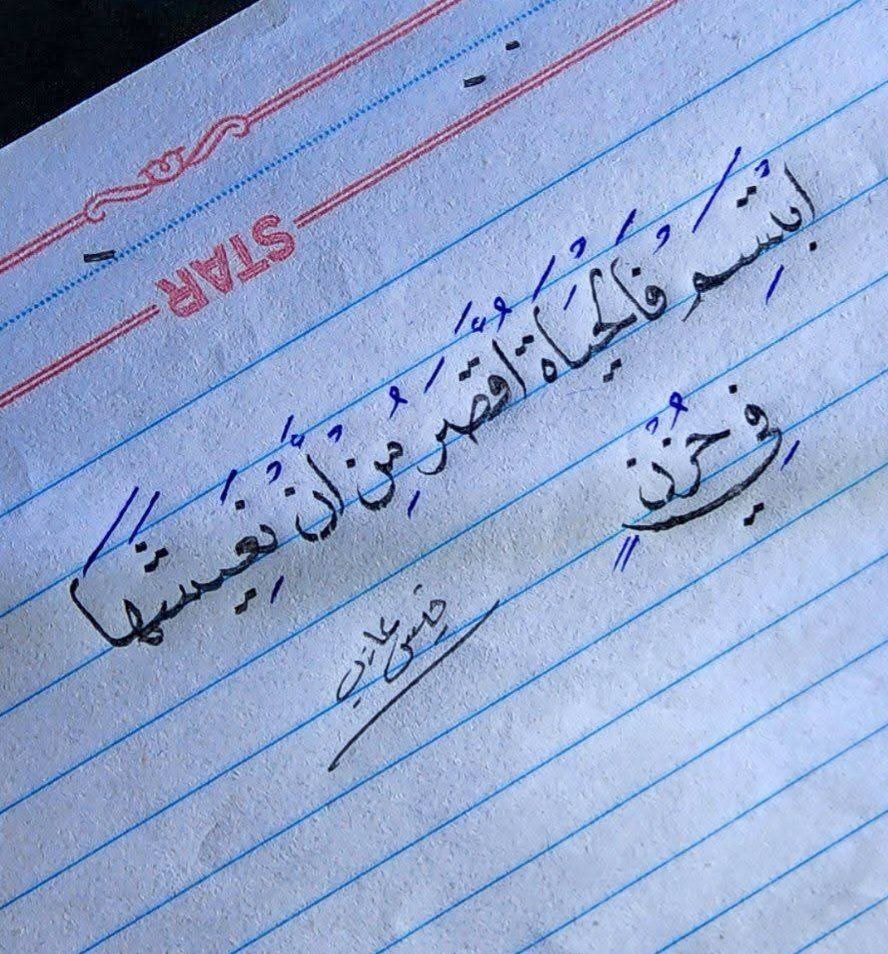 STAR
ابتسم فالحياة أقصر من أن نعيشها
في حزن